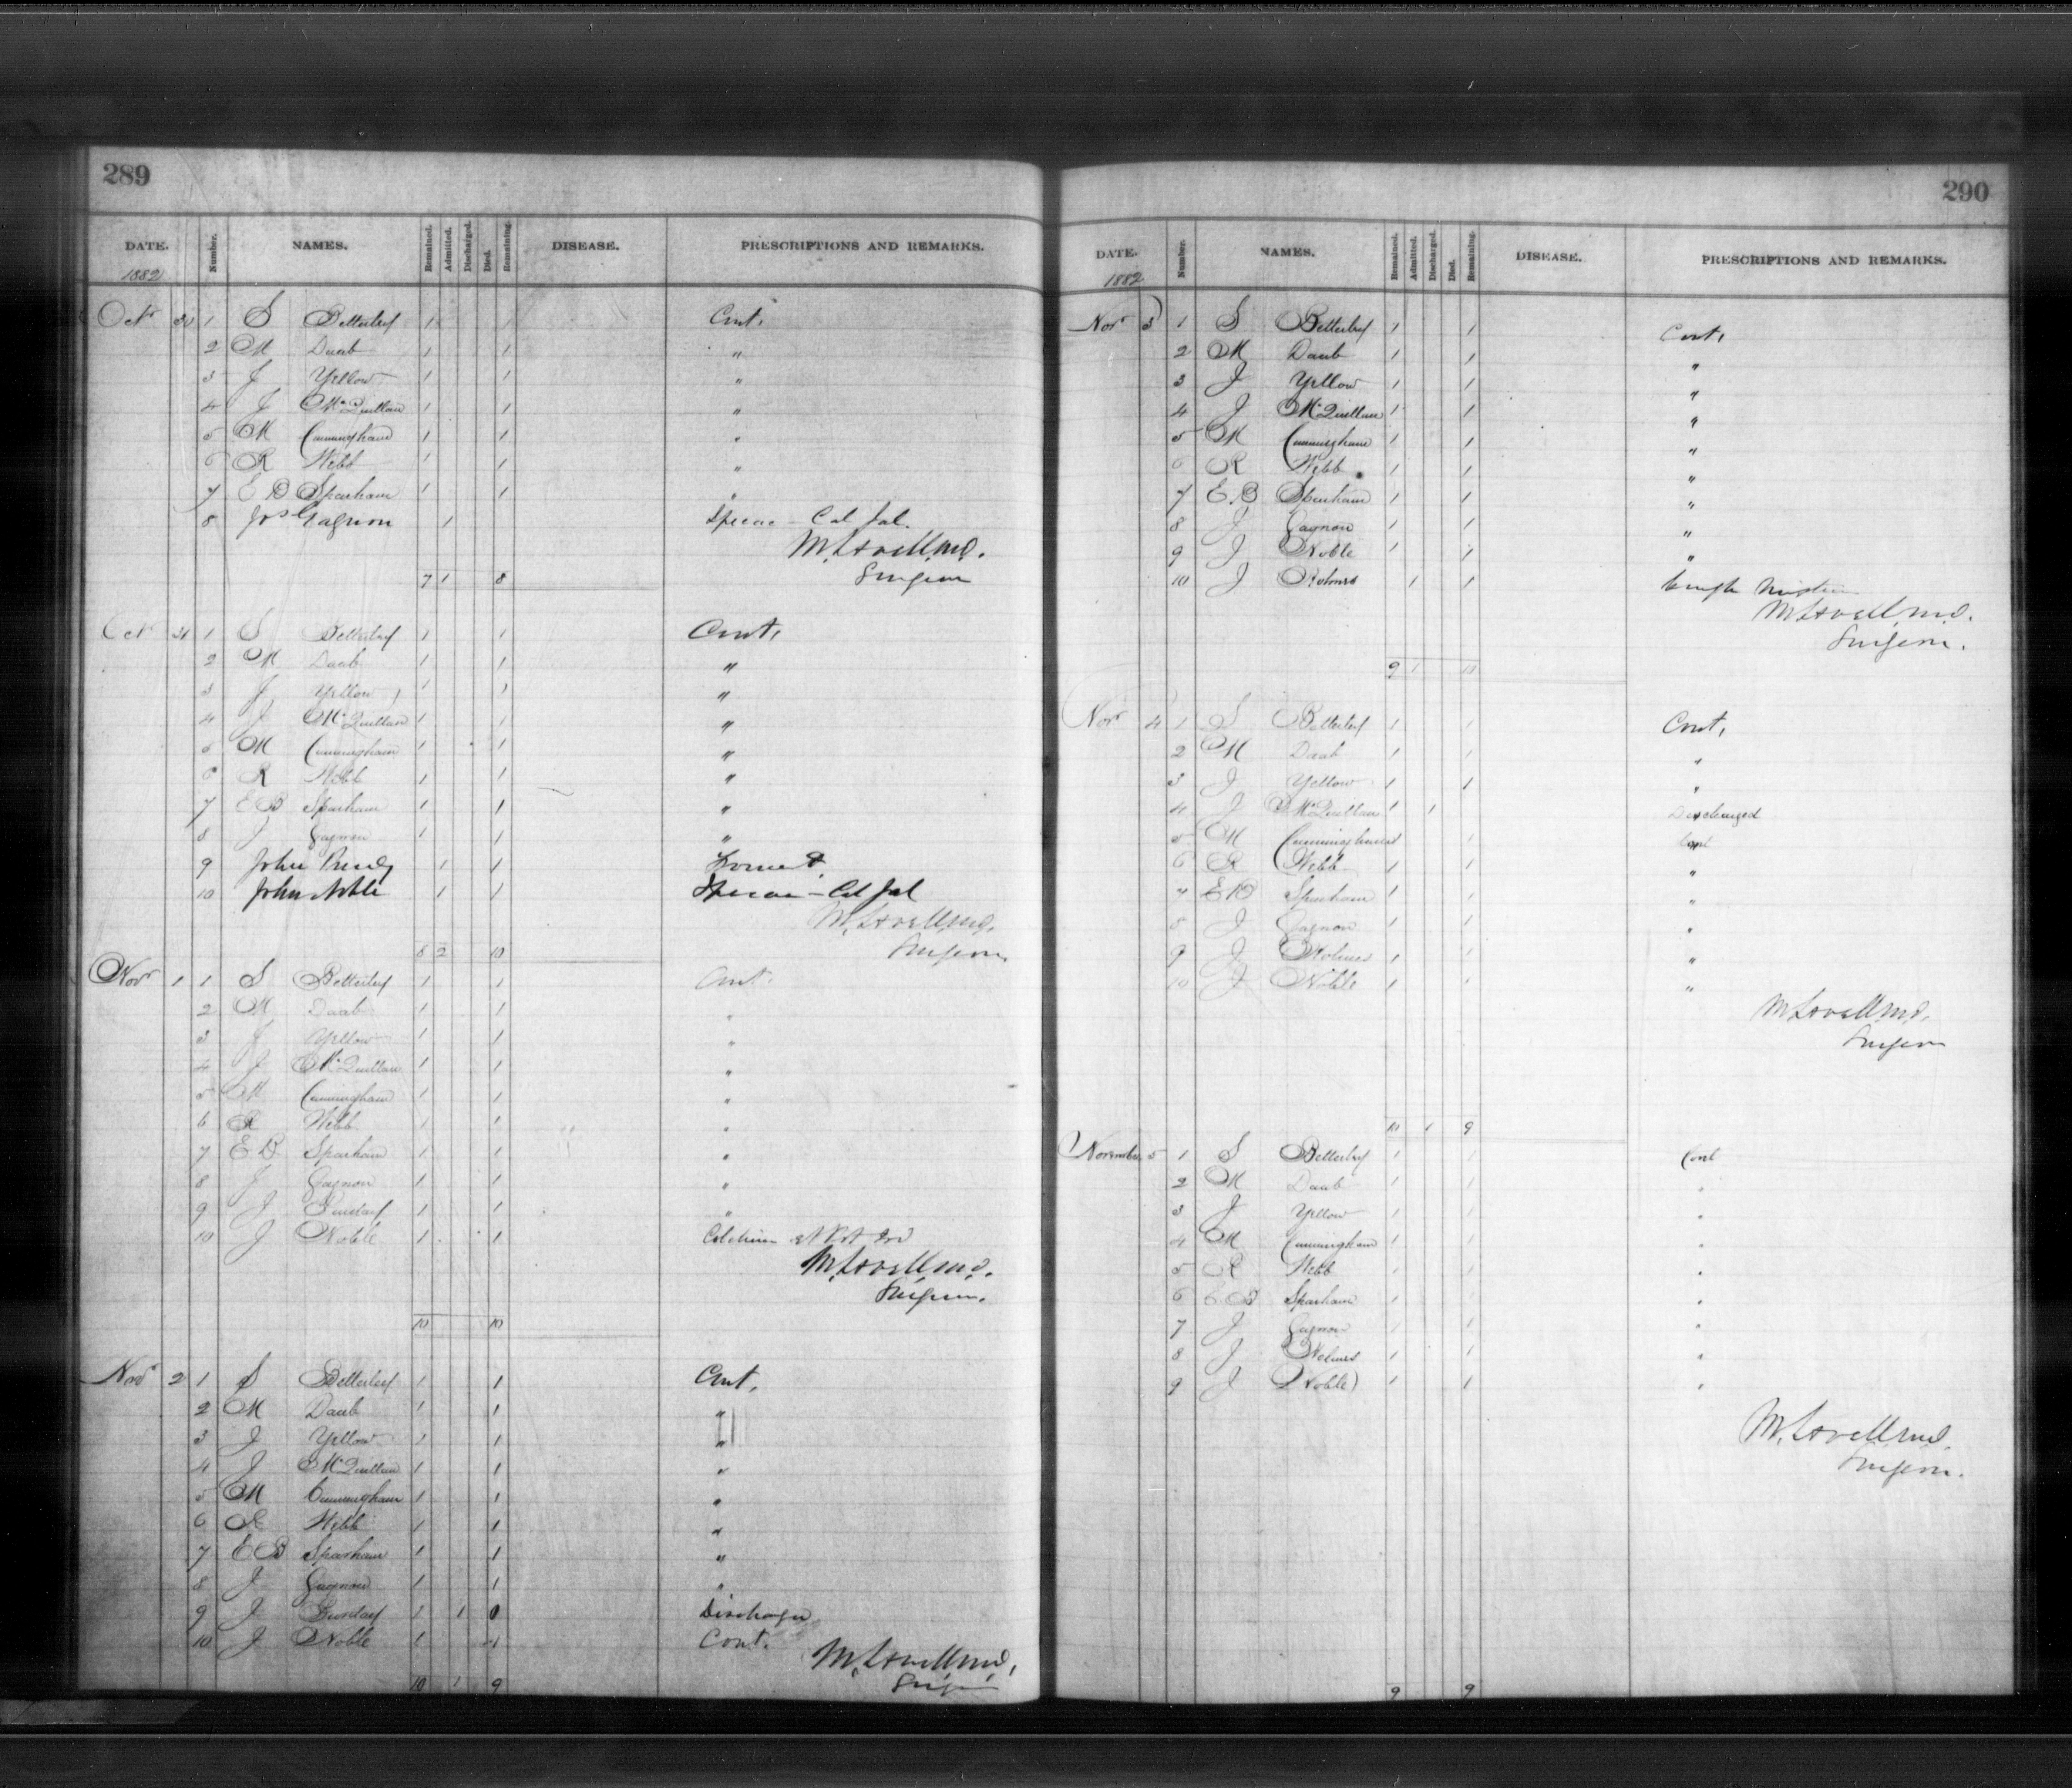 289
DATE. Number. NAMES. Remained. Admitted. Discharged. Died. Remaining. DISEASE. PRESCRIPTIONS AND REMARKS.
1882
Octr 30 1 S Betterley 1 1 Cont.
2 M Daab 1 1 "
3 J Yellow 1 1 "
4 J McQuillan 1 1 "
5 M Cunningham 1 1 "
6 R Webb 1 1 "
7 E B Sparham 1 1 "
8 Jos Gagnon 1 Ipecac - Cal Jal.
M. Lovell M.D.
Surgeon
7 1 8
Oct 31 1 S Betterley 1 1 Cont.
2 M Daab 1 1 "
3 J Yellow 1 1 "
4 J McQuillan 1 1 "
5 M Cunningham 1 1 "
6 R Webb 1 1 "
7 E B Sparham 1 1 "
8 J Gagnon 1 1 "
9 John 1 1
10 John Noble 1 1 Ipecac - Cal Jal
M. Lovell M.D.
Surgeon
8 2 10
Novr 1 1 S Betterley 1 1 Cont.
2 M Daab 1 1 "
3 J Yellow 1 1 "
4 J McQuillan 1 1 "
5 M Cunningham 1 1 "
6 R Webb 1 1 "
7 E B Sparham 1 1 "
8 J Gagnon 1 1 "
9 J 1 1 "
10 J Noble 1 1
M. Lovell M.D.
Surgeon.
10 10
Novr 2 1 S Betterley 1 1 Cont.
2 M Daub 1 1 "
3 J Yellow 1 1 "
4 J McQuillan 1 1 "
5 M Cunningham 1 1 "
6 R Webb 1 1 "
7 E B Sparham 1 1 "
8 J Gagnon 1 1 "
9 J 1 1 0
10 J Noble 1 1 Cont.
M. Lovell M.D.
Surgeon
10 1 9
290
DATE. Number. NAMES. Remained. Admitted. Discharged. Died. Remaining. DISEASE. PRESCRIPTIONS AND REMARKS.
1882
Novr 3 1 S Betterley 1 1 Cont.
2 M Daub 1 1 "
3 J Yellow 1 1 "
4 J McQuillan 1 1 "
5 M Cunningham 1 1 "
6 R Webb 1 1 "
7 E. B Sparham 1 1 "
8 J Gagnon 1 1 "
9 J Noble 1 1 "
10 J Holmes 1 1 Cough Mixture
M. Lovell M.D.
Surgeon.
9 1 10
Novr 4 1 S Betterley 1 1 Cont.
2 M Daab 1 1 "
3 J Yellow 1 1 "
4 J McQuillan 1 1 Discharged
5 M Cunningham 1 1 Cont
6 R Webb 1 1 "
7 E B Sparham 1 1 "
8 J Gagnon 1 1 "
9 J Holmes 1 1 "
10 J Noble 1 1 "
M. Lovell M.D.
Surgeon
10 1 9
November 5 1 S Betterley 1 1 Cont
2 M Daub 1 1 "
3 J Yellow 1 1 "
4 M Cunningham 1 1 "
5 R Webb 1 1 "
6 E B Sparham 1 1 "
7 J Gagnon 1 1 "
8 J Holmes 1 1 "
9 J Noble 1 1 "
M. Lovell M.D.
Surgeon.
9 9